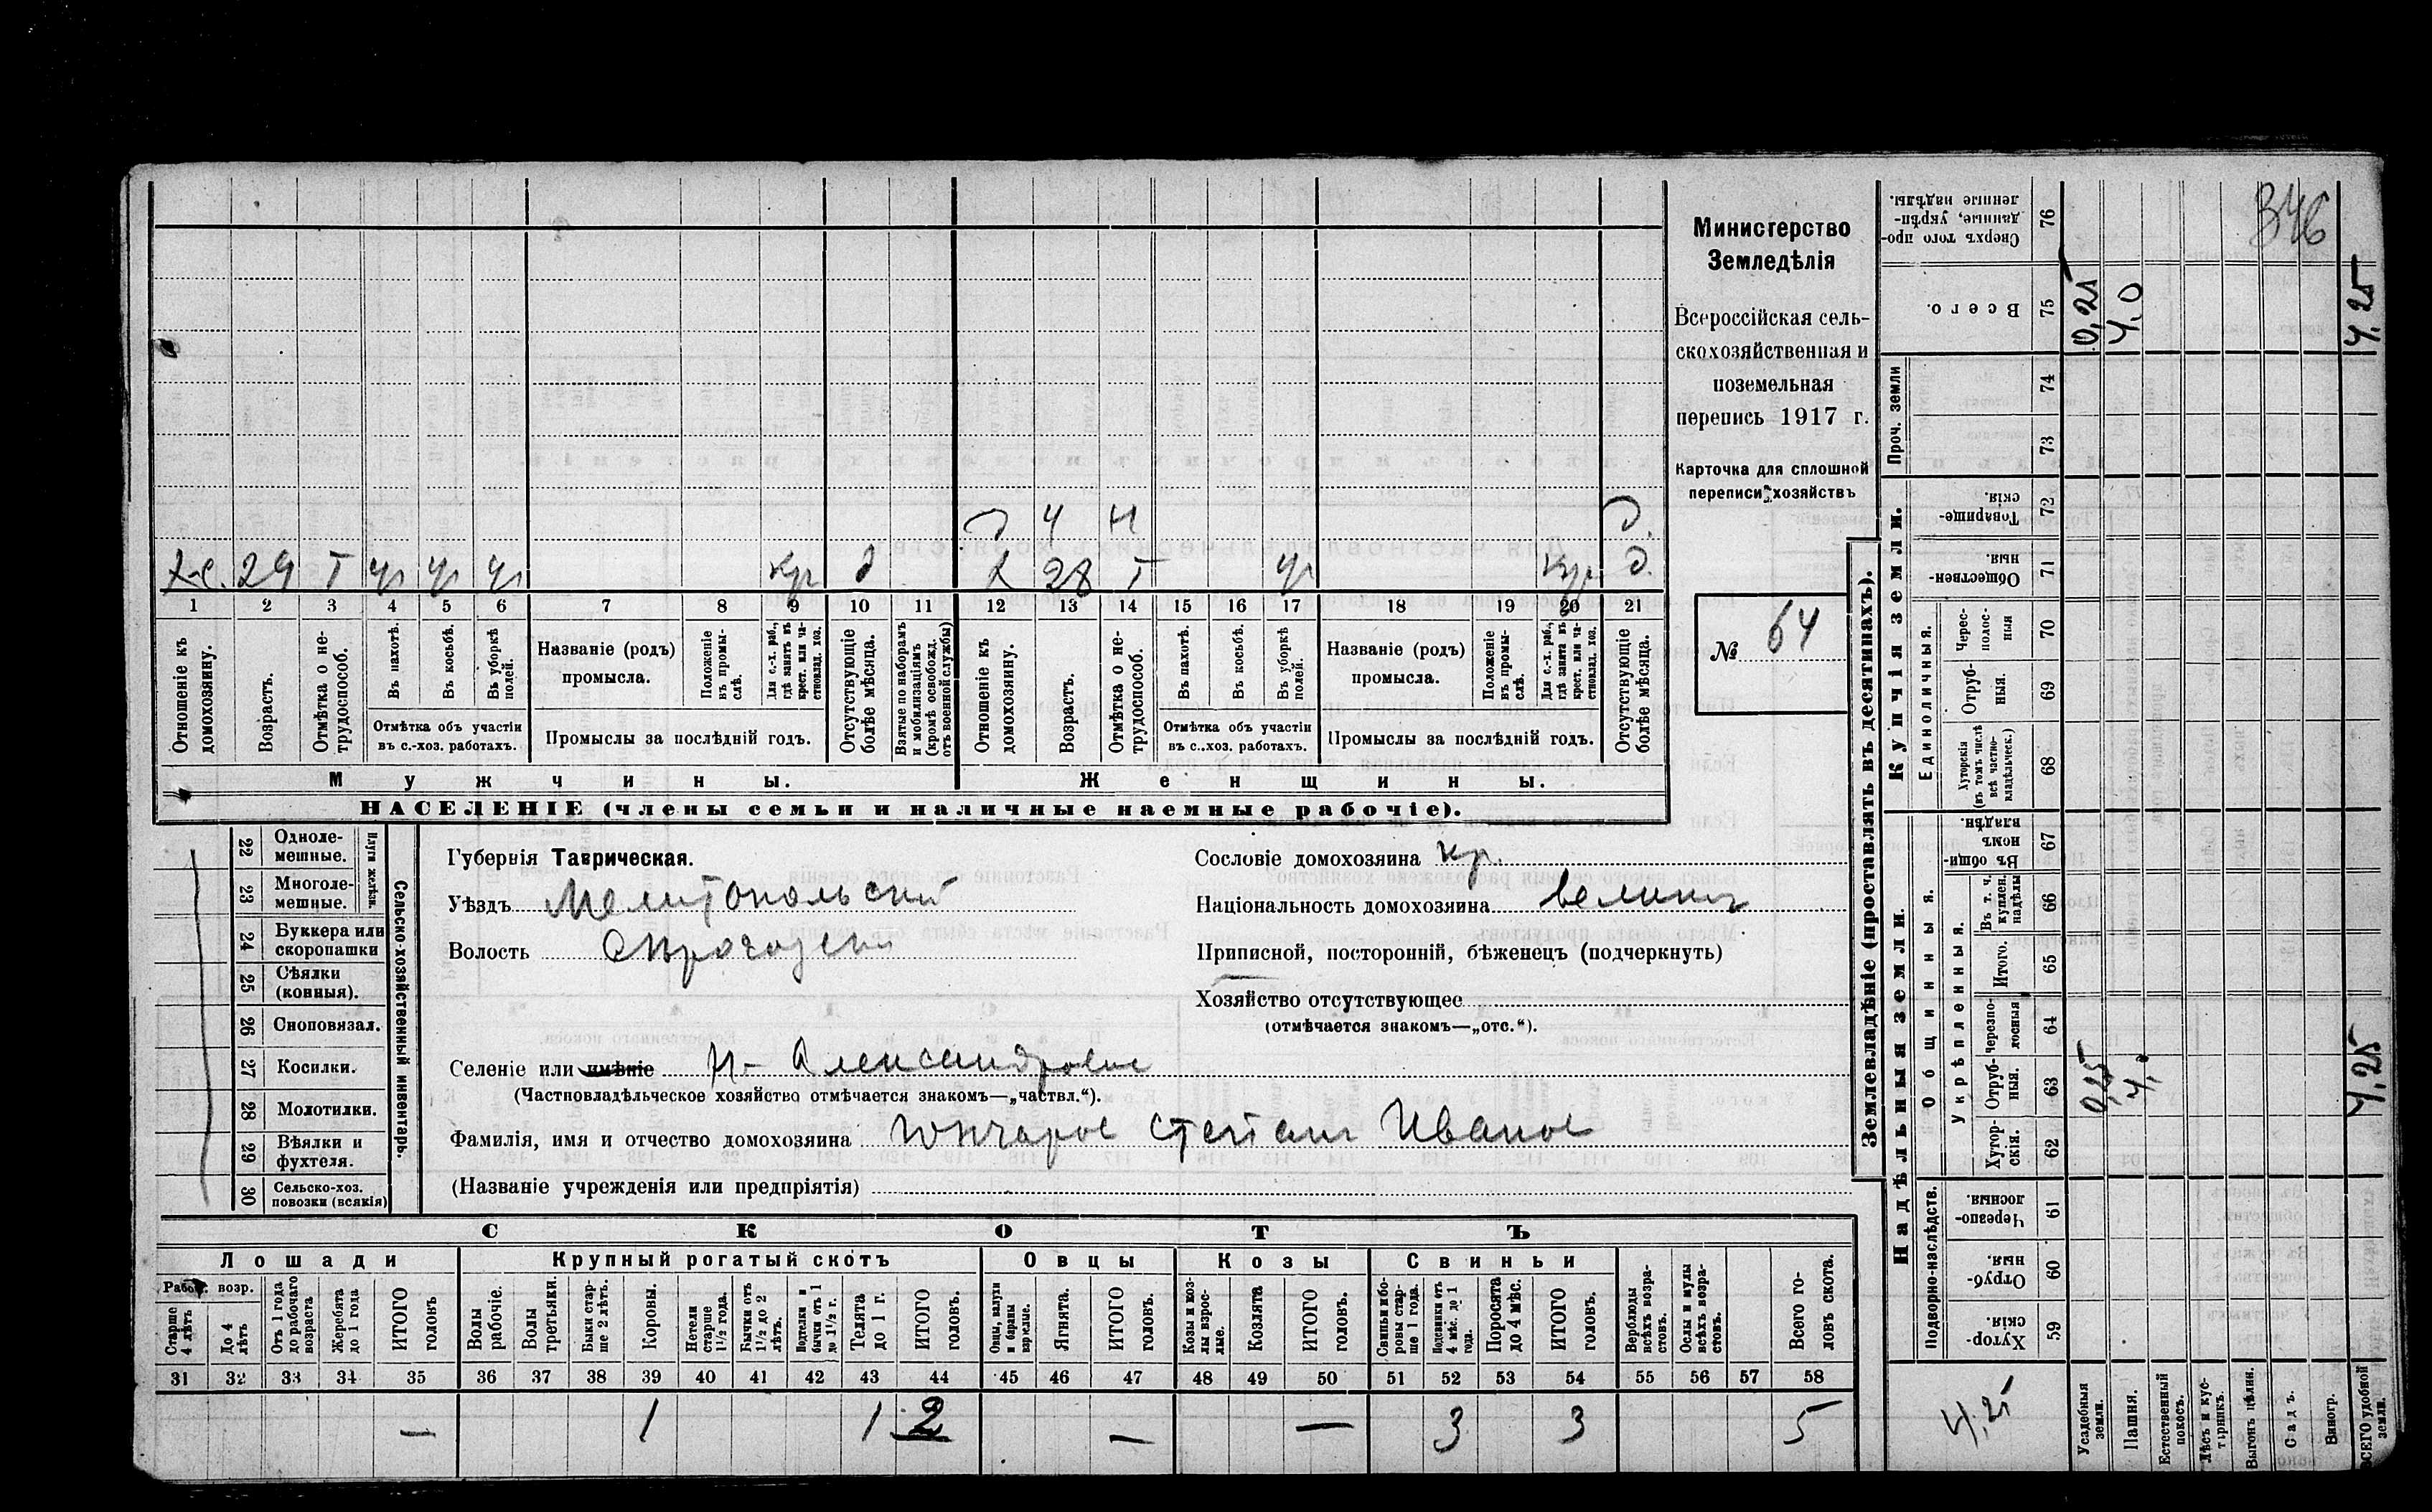 346
Министерство
Земледѣлія
Всероссійская сель-
скохозяйственная и
поземельная
перепись 1917 г.
Карточка для сплошной
переписи хозяйствъ
№ 64
4 Н
29 Т ч ч ч кр 28 Т ч кр
1 2 3 4 5 6 7 8 9 10 11 12 13 14 15 16 17 18 19 20 21
Отношеніе къ домохозяину.
Возрастъ.
Отмѣтка о не-трудоспособ.
Въ пахотѣ.
Въ косьбѣ.
Въ уборкѣ полей.
Отмѣтка объ участіи
въ с.-хоз. работахъ.
Названіе (родъ)
промысла.
Положеніе въ промы-слѣ.
Для с.-х. раб., гдѣ занятъ въ крест. или ча-стновлад. хоз.
Промыслы за послѣдній годъ.
Отсутствующіе болѣе мѣсяца.
Взятые по наборамъ и мобилизаціямъ (кромѣ освобожд. отъ военной службы)
Отношеніе къ домохозяину.
Возрастъ.
Отмѣтка о не-трудоспособ.
Въ пахотѣ.
Въ косьбѣ.
Въ уборкѣ полей.
Отмѣтка объ участіи
въ с.-хоз. работахъ.
Названіе (родъ)
промысла.
Положеніе въ промы-слѣ.
Для с.-х. раб., гдѣ занята въ крест. или ча-стновлад. хоз.
Промыслы за послѣдній годъ.
Отсутствующіе болѣе мѣсяца.
Мужчины. Женщины.
НАСЕЛЕНІЕ (члены семьи и наличные наемные рабочіе).
Сельско-хозяйственный инвентарь.
Плуги желѣзн.
22 Одноле-
мешные.
23 Многоле-
мешные.
24 Буккера или
скоропашки
25 Сѣялки
(конныя).
26 Сноповязал.
27 Косилки.
28 Молотилки.
29 Вѣялки и
фухтеля.
30 Сельско-хоз.
повозки (всякія)
Губернія Таврическая.
Уѣздъ Мелитопольский
Волость
Селеніе или имѣніе Н-Александровка
(Частновладѣльческое хозяйство отмѣчается знакомъ—„частвл.“).
Фамилія, имя и отчество домохозяина Гончаров Степан Иванов
(Названіе учрежденія или предпріятія)
Сословіе домохозяина кр.
Національность домохозяина велик
Приписной, посторонній, бѣженецъ (подчеркнуть)
Хозяйство отсутствующее
(отмѣчается знакомъ—„отс.“).
СКОТЪ
Лошади Крупный рогатый скотъ Овцы Козы Свиньи
Рабоч. возр.
Старше 4 лѣтъ
До 4 лѣтъ
Отъ 1 года до рабочаго возраста
Жеребята до 1 года
ИТОГО головъ
Волы рабочіе.
Волы третьяки.
Быки стар-ше 2 лѣтъ.
Коровы.
Нетели старше 1½ года.
Бычки отъ 1½ до 2 лѣтъ.
Подтелки и бычки отъ 1 до 1½ г.
Телята до 1 г.
ИТОГО головъ.
Овцы, валухи и бараны взрослые.
Ягнята.
ИТОГО головъ.
Козы и коз-лы взрос-лые.
Козлята
ИТОГО головъ.
Свиньи и бо-ровы стар-ше 1 года.
Подсвинки отъ 4 мѣс. до 1 года.
Поросята до 4 мѣс.
ИТОГО головъ.
Верблюды всѣхъ возра-стовъ.
Ослы и мулы всѣхъ возра-стовъ.
Всего го-ловъ скота.
31 32 33 34 35 36 37 38 39 40 41 42 43 44 45 46 47 48 49 50 51 52 53 54 55 56 57 58
— 1 1 2 — — 3 3 5
Землевладѣніе (проставлять въ десятинахъ).
Надѣльныя земли.
Купчія земли.
Проч. земли
Подворно-наслѣдств.
Общинныя.
Укрѣпленныя.
Единоличныя.
Хутор-скія. 59
Отруб-ныя. 60
Черезпо-лосныя. 61
Хутор-скія. 62
Отруб-ныя. 63
Черезпо-лосныя 64
Итого. 65
Въ т. ч. куплен. надѣлы 66
Въ общи-номъ владѣн. 67
Хуторскія (въ томъ числѣ всѣ частно-владѣльческ.) 68
Отруб-ныя. 69
Черес-полос-ныя 70
Обществен-ныя. 71
Товарище-скія. 72
73
74
Всего. 75
Сверхъ того про-данные, укрѣп-ленные надѣлы. 76
Усадебныя земли.
Пашня.
Естественный покосъ.
Лѣсъ и кус-тарникъ.
Выгонъ цѣлин.
Садъ.
Виногр.
ВСЕГО удобной земли.
0,25
4,0
4,25
0,25
4,
4,25
4,25